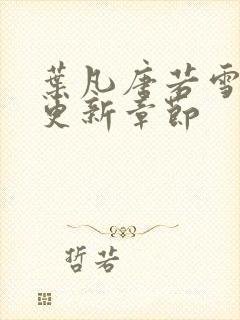 葉凡唐若雪
更新章節
哲若